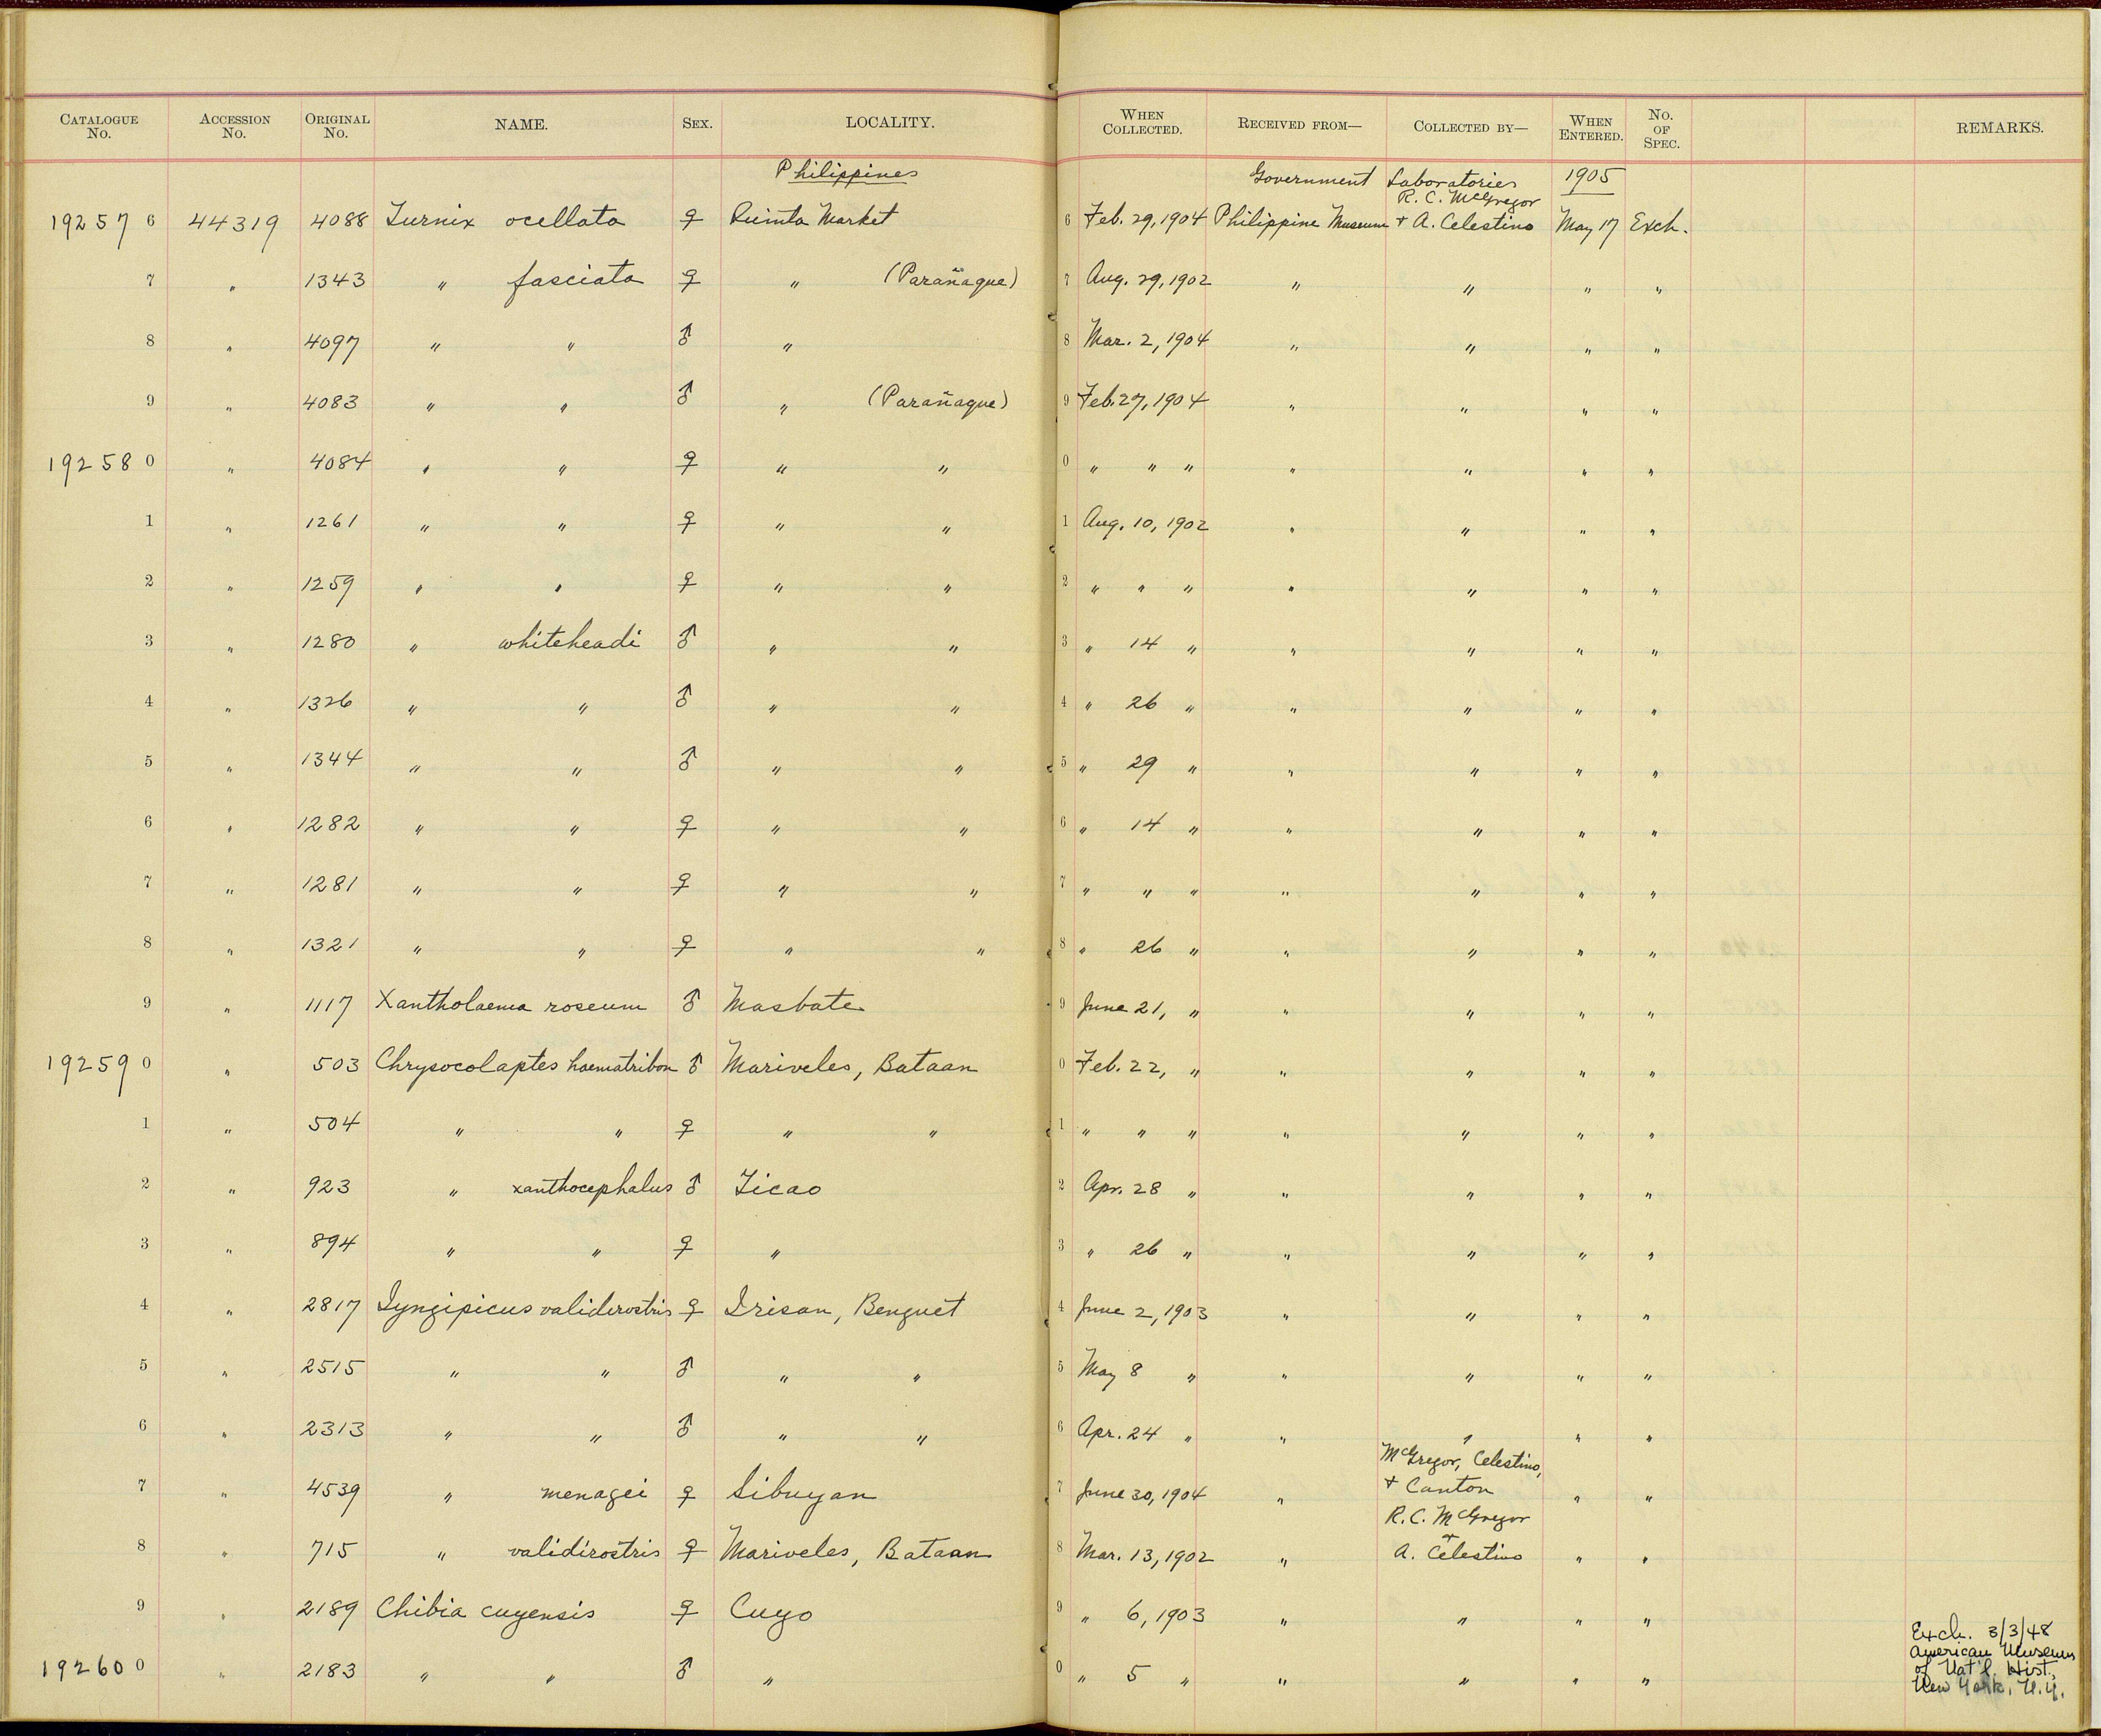 CATALOGUE No. ACCESSION No. ORIGINAL No. NAME. SEX. LOCALITY. WHEN COLLECTED. RECEIVED FROM— COLLECTED BY— WHEN ENTERED. No. OF SPEC. REMARKS.
Philippines Government Laboratories 1905
R. C. McGregor
19257 6 44319 4088 Turnix ocellata ♀ Quinta Market 6 Feb. 29, 1904 Philippine Museum + A. Celestino May 17 Exch.
7 " 1343 " fasciata ♀ " (Parañaque) 7 Aug. 29, 1902 " " " "
8 " 4097 " " ♂ " 8 Mar. 2, 1904 " " " "
9 " 4083 " " ♂ " (Parañaque) 9 Feb. 27, 1904 " " " "
19258 0 " 4084 " " ♀ " " 0 " " " " " " "
1 " 1261 " " ♀ " " 1 Aug. 10, 1902 " " " "
2 " 1259 " " ♀ " " 2 " " " " " " "
3 " 1280 " whiteheadi ♂ " " 3 " 14 " " " " "
4 " 1326 " " ♂ " " 4 " 26 " " " " "
5 " 1344 " " ♂ " " 5 " 29 " " " " "
6 " 1282 " " ♀ " " 6 " 14 " " " " "
7 " 1281 " " ♀ " " 7 " " " " " " "
8 " 1321 " " ♀ " " 8 " 26 " " " " "
9 " 1117 Xantholaema roseum ♂ Masbate 9 June 21, " " " " "
19259 0 " 503 Chrysocolaptes haematribon ♂ Mariveles, Bataan 0 Feb. 22, " " " " "
1 " 504 " " ♀ " " 1 " " " " " " "
2 " 923 " xanthocephalus ♂ Ticao 2 Apr. 28 " " " " "
3 " 894 " " ♀ " 3 " 26 " " " " "
4 " 2817 Iyngipicus validirostris ♀ Irisan, Benguet 4 June 2, 1903 " " " "
5 " 2515 " " ♂ " " 5 May 8 " " " " "
6 " 2313 " " ♂ " " 6 Apr. 24 " " " " "
McGregor, Celestino,
7 " 4539 " menagei ♀ Sibuyan 7 June 30, 1904 " + Canton " "
R. C. McGregor
+
8 " 715 " validirostris ♀ Mariveles, Bataan 8 Mar. 13, 1902 " A. Celestino " "
9 " 2189 Chibia cuyensis ♀ Cuyo 9 " 6, 1903 " " " "
19260 0 " 2183 " " ♂ " 0 " 5 " " " " "
Exch. 3/3/48
American Museum
of Nat'l. Hist.,
New York, N.Y.